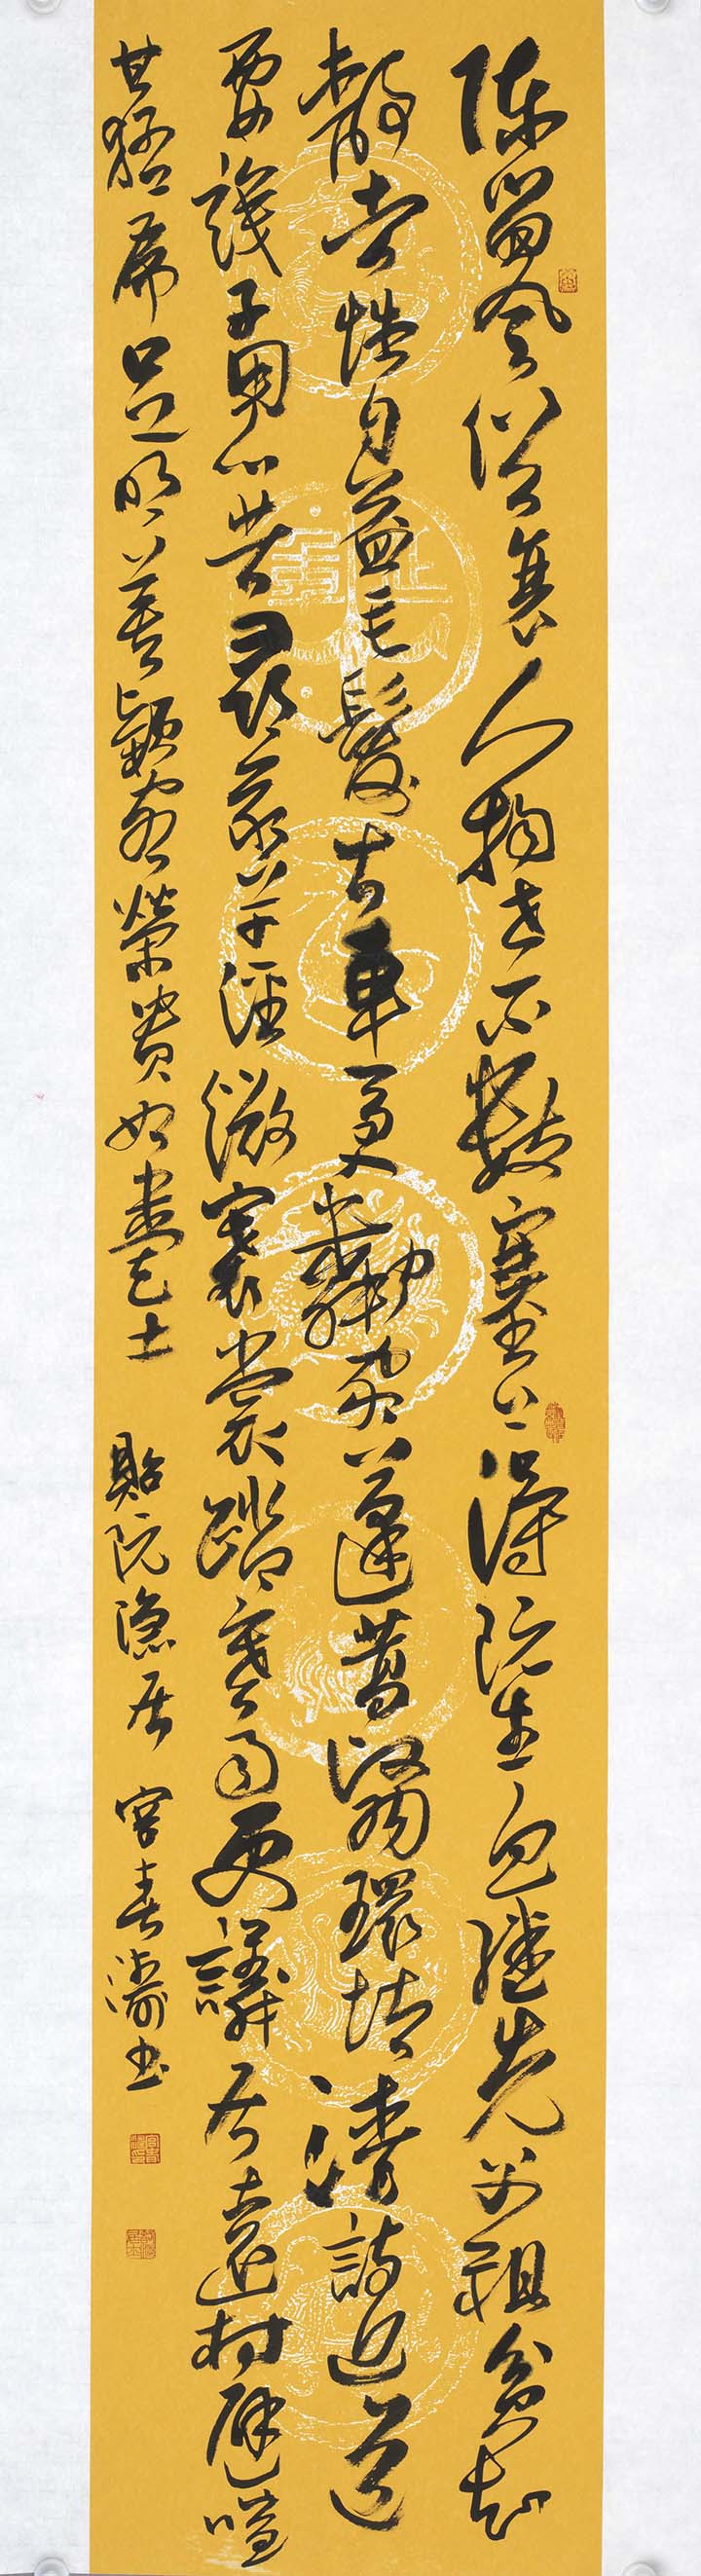 陳留風俗衰人物世不數塞上得阮生迥繼先父祖貧知
靜者性自益毛髮古車馬入鄰家蓬蒿翳環堵清詩近道
要識子用心苦尋我草徑微褰裳踏寒雨更議居遠村避喧
甘猛虎足明箕潁客榮貴如糞土 貽阮隐居 宮春 書